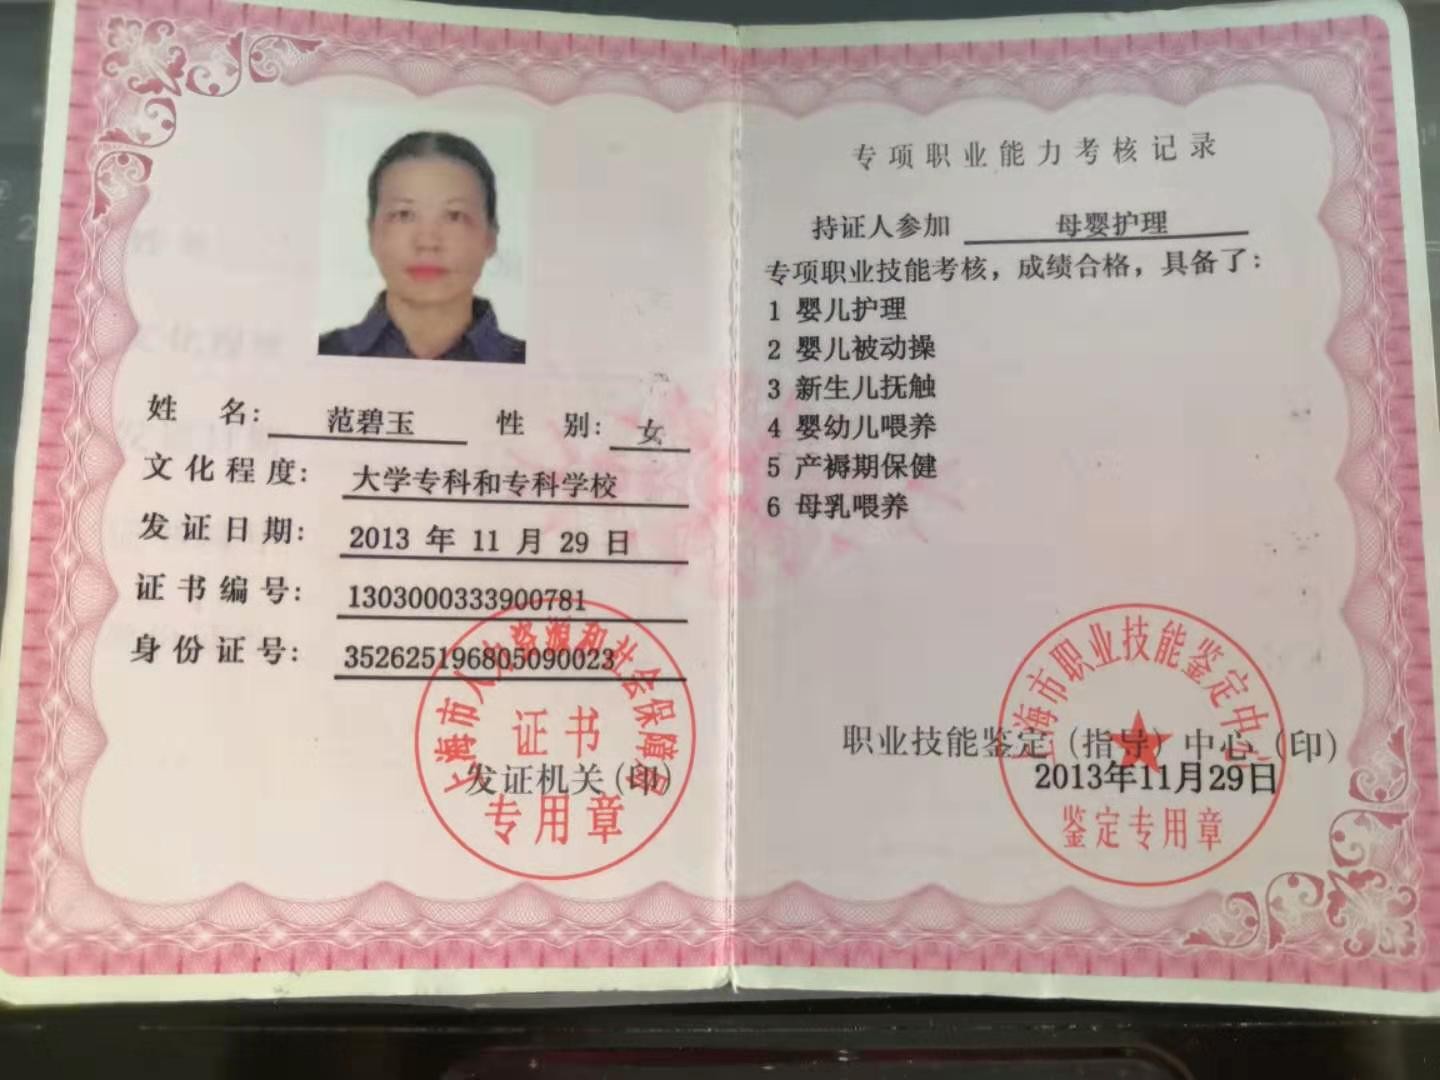 姓 名: 范碧玉 性 别: 女
文化程度: 大学专科和专科学校
发证日期: 2013 年 11 月 29 日
证书编号: 1303000333900781
身份证号: 352625196805090023
上海市人力资源和社会保障局
证书
发证机关(印)
专用章
专项职业能力考核记录
持证人参加 母婴护理
专项职业技能考核，成绩合格，具备了:
1 婴儿护理
2 婴儿被动操
3 新生儿抚触
4 婴幼儿喂养
5 产褥期保健
6 母乳喂养
上海市职业技能鉴定中心
职业技能鉴定(指导)中心(印)
2013年11月29日
鉴定专用章